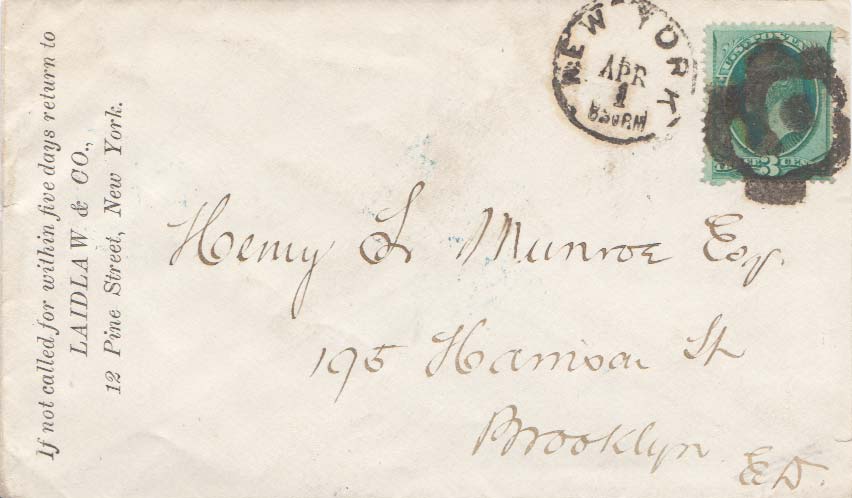 If not called for within five days return to
LAIDLAW & CO.,
12 Pine Street, New York.
NEW YORK
APR
1
830PM
U.S. POSTAGE
3 CENTS
Henry L Munroe Esq.
195 Harrison St
Brooklyn
E.D.